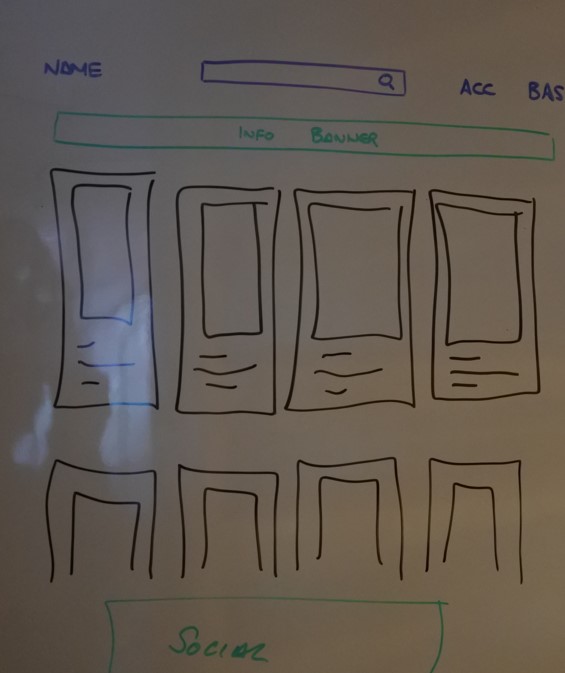 NAME
ACC BAS
INFO BANNER
SOCIAL